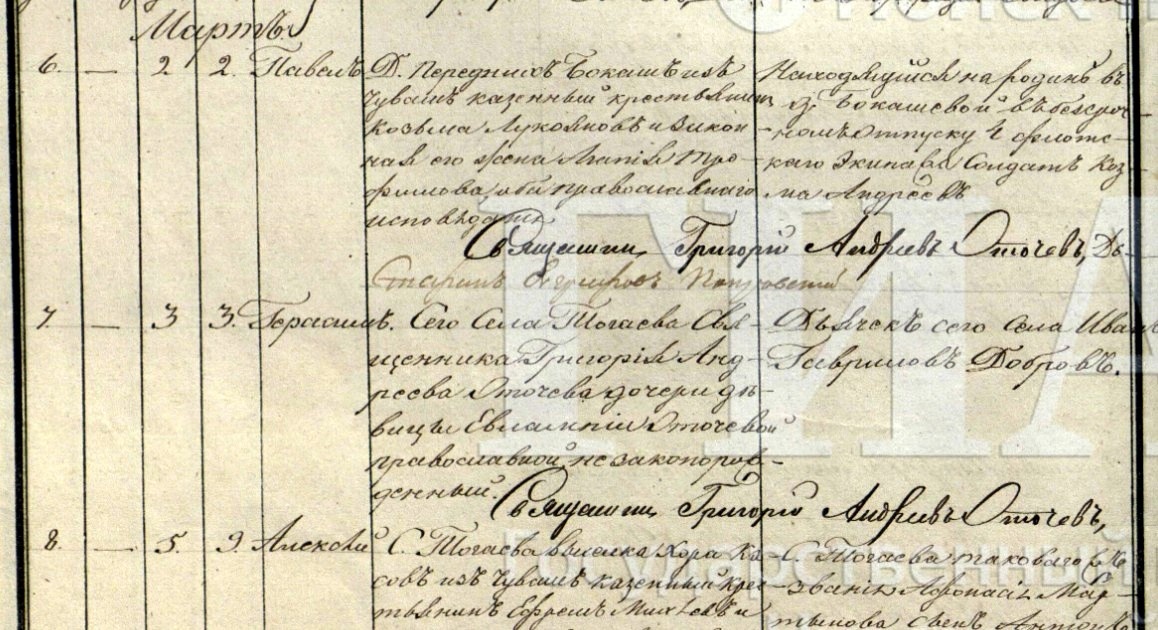 Мартъ.
6. — 2 2. Павелъ Д. Переднихъ Бокашъ изъ
Чувашъ казенный крестьянинъ
Козьма Лукояновъ и закон-
ная его жена Анания Тро-
фимова, оба православнаго
исповѣданія
Находящійся на родинѣ въ
д. Бокашевой въ безсроч-
номъ отпуску 4 флотс-
каго Экипажа Солдатъ Коз-
ма Андреевъ
Священникъ Григорій Андреевъ Оточевъ, Дь-
7. — 3 3. Герасимъ. Сего Села Тогаева Свя-
щенника Григорія Анд-
реева Оточева дочери дѣ-
вицы Евлампіи Оточевой
православной, незаконорож-
денный.
Дьячекъ сего Села Иванъ
Гавриловъ Добровъ.
Священникъ Григорій Андреевъ Оточевъ,
8. — 5. 9. Алексѣй С. Тогаева выселка Хора Ка-
совъ изъ Чувашъ казенный крес-
тьянинъ Ефремъ Михѣевъ и
С. Тогаева таковаго же
званія Афонасія Мар-
тынова сынъ Антонъ